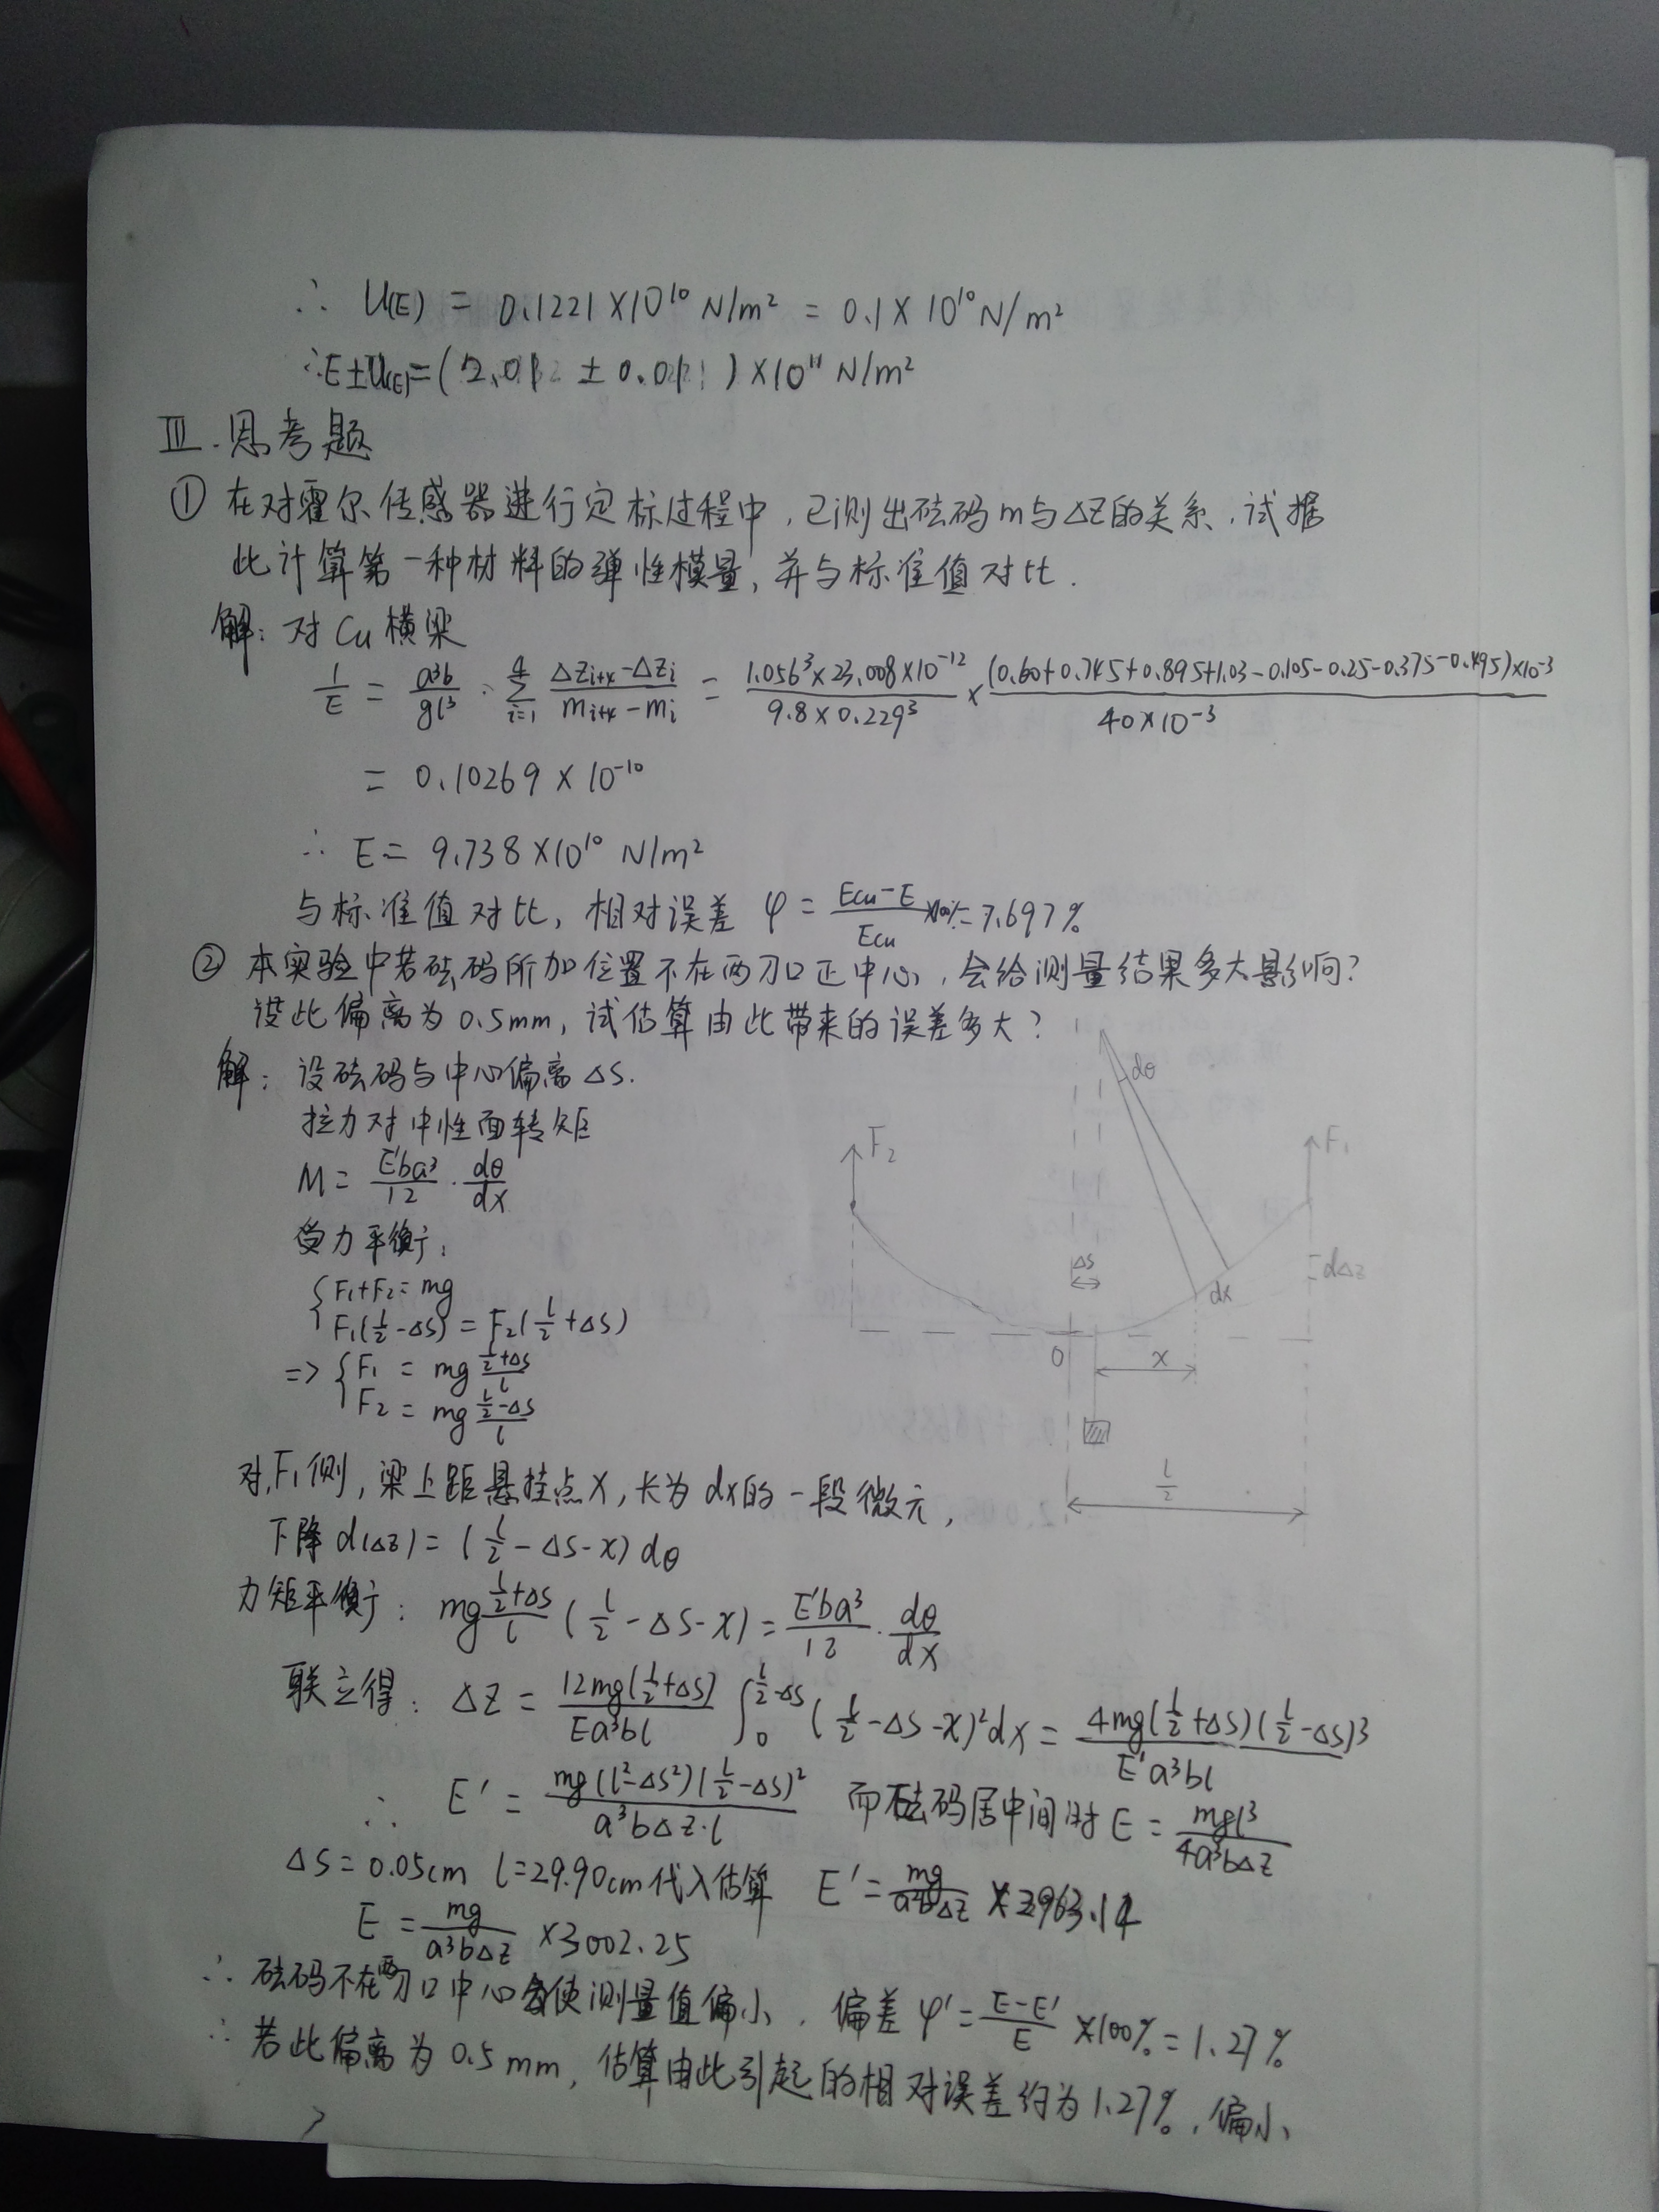 ∴ U(E) = 0.1221×10¹⁰ N/m² = 0.1×10¹⁰ N/m²
∴ E±U(E) = ( 2.01 ± 0.01 )×10¹¹ N/m²
Ⅲ. 思考题
① 在对霍尔传感器进行定标过程中, 已测出砝码m与ΔZ的关系, 试据
此计算第一种材料的弹性模量, 并与标准值对比.
解: 对Cu横梁
1/E = a³b/gl³ · Σ(i=1→4) (ΔZi+4-ΔZi)/(mi+4-mi) = (1.056³×23.008×10⁻¹²)/(9.8×0.229³) × ((0.60+0.745+0.895+1.03-0.105-0.25-0.375-0.495)×10⁻³)/(40×10⁻³)
= 0.10269×10⁻¹⁰
∴ E = 9.738×10¹⁰ N/m²
与标准值对比, 相对误差 φ = (Ecu-E)/Ecu ×100% = 7.697%
② 本实验中若砝码所加位置不在两刀口正中心, 会给测量结果多大影响?
设此偏离为0.5mm, 试估算由此带来的误差多大?
解: 设砝码与中心偏离ΔS.
拉力对中性面转矩
M = E'ba³/12 · dθ/dx
受力平衡:
{ F₁+F₂ = mg
F₁(l/2-ΔS) = F₂(l/2+ΔS)
=> { F₁ = mg (l/2+ΔS)/l
F₂ = mg (l/2-ΔS)/l
dθ
F₂
F₁
ΔS
dΔZ
dx
O
x
l/2
对F₁侧, 梁上距悬挂点x, 长为dx的一段微元,
下降 d(ΔZ) = (l/2-ΔS-x)dθ
力矩平衡: mg (l/2+ΔS)/l (l/2-ΔS-x) = E'ba³/12 · dθ/dx
联立得: ΔZ = 12mg(l/2+ΔS)/Ea³bl ∫₀^(l/2-ΔS) (l/2-ΔS-x)²dx = 4mg(l/2+ΔS)(l/2-ΔS)³/E'a³bl
∴ E' = mg(l²-ΔS²)(l/2-ΔS)²/a³bΔZ·l 而砝码居中间时 E = mgl³/4a³bΔZ
ΔS = 0.05cm l = 29.90cm 代入估算 E' = mg/a³bΔZ × 2963.14
E = mg/a³bΔZ ×3002.25
∴ 砝码不在两刀口中心会使测量值偏小, 偏差 φ' = (E-E')/E ×100% = 1.27%
∴ 若此偏离为0.5mm, 估算由此引起的相对误差约为1.27%, 偏小